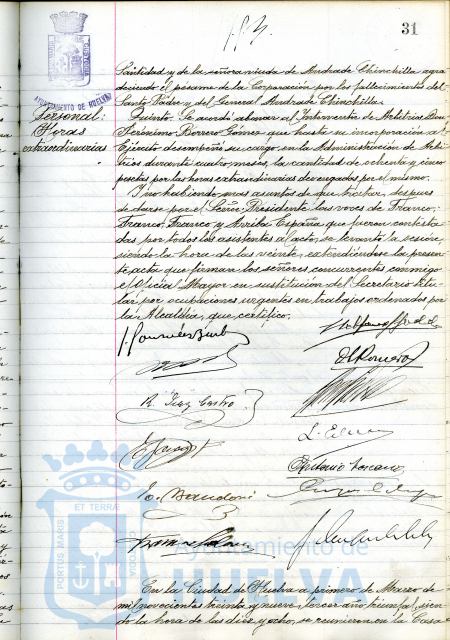 31
AYUNTAMIENTO DE HUELVA
Personal:
Horas
extraordinarias
Santidad y de la señora viuda de Andrade Chinchilla agra
deciendo el pésame de la Corporación por los fallecimientos del
Santo Padre y del General Andrade Chinchilla.
Quinto: Se acordó abonar al Interventor de Arbitrios Don
Jerónimo Borrero Gómez que hasta su incorporación al
Ejército desempeñó su cargo en la Administración de Arbi
trios durante cuatro meses, la cantidad de ochenta y cinco
pesetas por las horas extraordinarias devengadas por el mismo.
Y no habiendo mas asuntos de que tratar, despues
de darse por el Señor Presidente las voces de Franco,
Franco, Franco y Arriba España que fueron contesta
das por todos los asistentes al acto, se levantó la sesion
siendo la hora de las veinte, extendiéndose la presen
te acta que firman los señores concurrentes conmigo
el Oficial Mayor en sustitución del Secretario titu
lar por ocupaciones urgentes en trabajos ordenados por
la Alcaldia, que certifico.
Romero
Diaz Castro
Antonio Toscano
ET TERRÆ
PORTUS MARIS
CUSTODIA
Ayuntamiento de
HUELVA
En la Ciudad de Huelva a primero de Marzo de
mil novecientos treinta y nueve, tercer año triunfal, sien
do la hora de las diez y ocho, se reunieron en la Casa